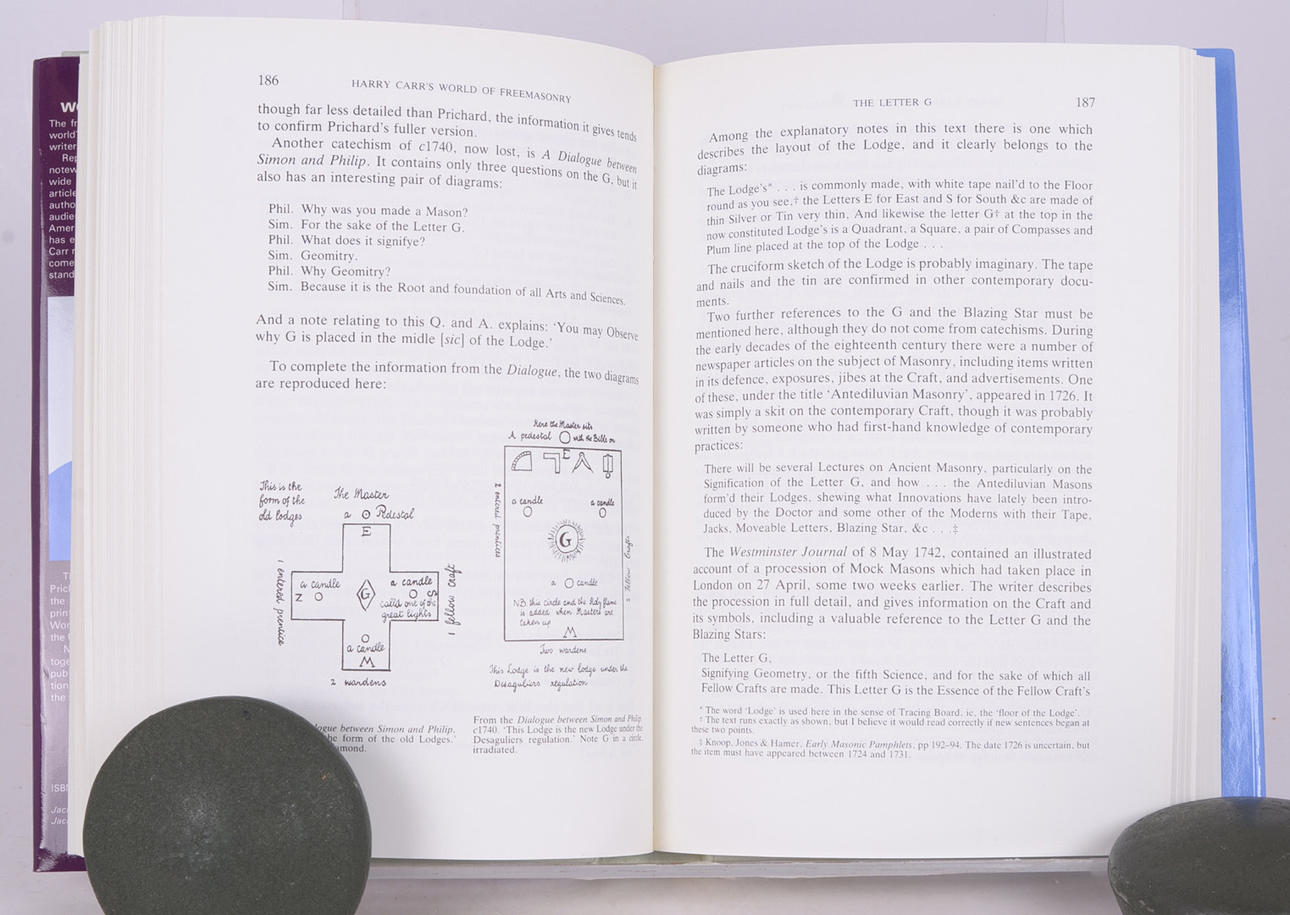 W
The fr
world'
writer
Rep
notew
wide
article
autho
audie
Amer
has e
Carr r
come
stand
T
Pricl
the
print
Wor
the I
N
toge
pub
tion
the
ISBN
Jac
Jac
186
HARRY CARR'S WORLD OF FREEMASONRY
though far less detailed than Prichard, the information it gives tends
to confirm Prichard's fuller version.
Another catechism of c1740, now lost, is A Dialogue between
Simon and Philip. It contains only three questions on the G, but it
also has an interesting pair of diagrams:
Phil. Why was you made a Mason?
Sim. For the sake of the Letter G.
Phil. What does it signifye?
Sim. Geomitry.
Phil. Why Geomitry?
Sim. Because it is the Root and foundation of all Arts and Sciences.
And a note relating to this Q. and A. explains: 'You may Observe
why G is placed in the midle [sic] of the Lodge.'
To complete the information from the Dialogue, the two diagrams
are reproduced here:
This is the
form of the
old lodges
The Master
a Pedestal
E
1 entered prentice
a candle
N
G
a candle
S
called one of the
great lights
1 fellow craft
a candle
M
2 wardens
here the Master sits
A pedestal with the Bible on
E
2 entered prentices
a candle
a candle
G
2 fellow Crafts
a candle
NB. this circle and the Holy flame
is added when Masters are
taken up
M
Two wardens
This Lodge is the new lodge under the
Desaguliers regulation
logue between Simon and Philip,
he form of the old Lodges.'
amond.
From the Dialogue between Simon and Philip,
c1740. 'This Lodge is the new Lodge under the
Desaguliers regulation.' Note G in a circle,
irradiated.
THE LETTER G
187
Among the explanatory notes in this text there is one which
describes the layout of the Lodge, and it clearly belongs to the
diagrams:
The Lodge's* . . . is commonly made, with white tape nail'd to the Floor
round as you see,† the Letters E for East and S for South &c are made of
thin Silver or Tin very thin, And likewise the letter G† at the top in the
now constituted Lodge's is a Quadrant, a Square, a pair of Compasses and
Plum line placed at the top of the Lodge . . .
The cruciform sketch of the Lodge is probably imaginary. The tape
and nails and the tin are confirmed in other contemporary docu-
ments.
Two further references to the G and the Blazing Star must be
mentioned here, although they do not come from catechisms. During
the early decades of the eighteenth century there were a number of
newspaper articles on the subject of Masonry, including items written
in its defence, exposures, jibes at the Craft, and advertisements. One
of these, under the title 'Antediluvian Masonry', appeared in 1726. It
was simply a skit on the contemporary Craft, though it was probably
written by someone who had first-hand knowledge of contemporary
practices:
There will be several Lectures on Ancient Masonry, particularly on the
Signification of the Letter G, and how . . . the Antediluvian Masons
form'd their Lodges, shewing what Innovations have lately been intro-
duced by the Doctor and some other of the Moderns with their Tape,
Jacks, Moveable Letters, Blazing Star, &c . . .‡
The Westminster Journal of 8 May 1742, contained an illustrated
account of a procession of Mock Masons which had taken place in
London on 27 April, some two weeks earlier. The writer describes
the procession in full detail, and gives information on the Craft and
its symbols, including a valuable reference to the Letter G and the
Blazing Stars:
The Letter G,
Signifying Geometry, or the fifth Science, and for the sake of which all
Fellow Crafts are made. This Letter G is the Essence of the Fellow Craft's
* The word 'Lodge' is used here in the sense of Tracing Board, ie, the 'floor of the Lodge'.
† The text runs exactly as shown, but I believe it would read correctly if new sentences began at
these two points.
‡ Knoop, Jones & Hamer, Early Masonic Pamphlets, pp 192–94. The date 1726 is uncertain, but
the item must have appeared between 1724 and 1731.